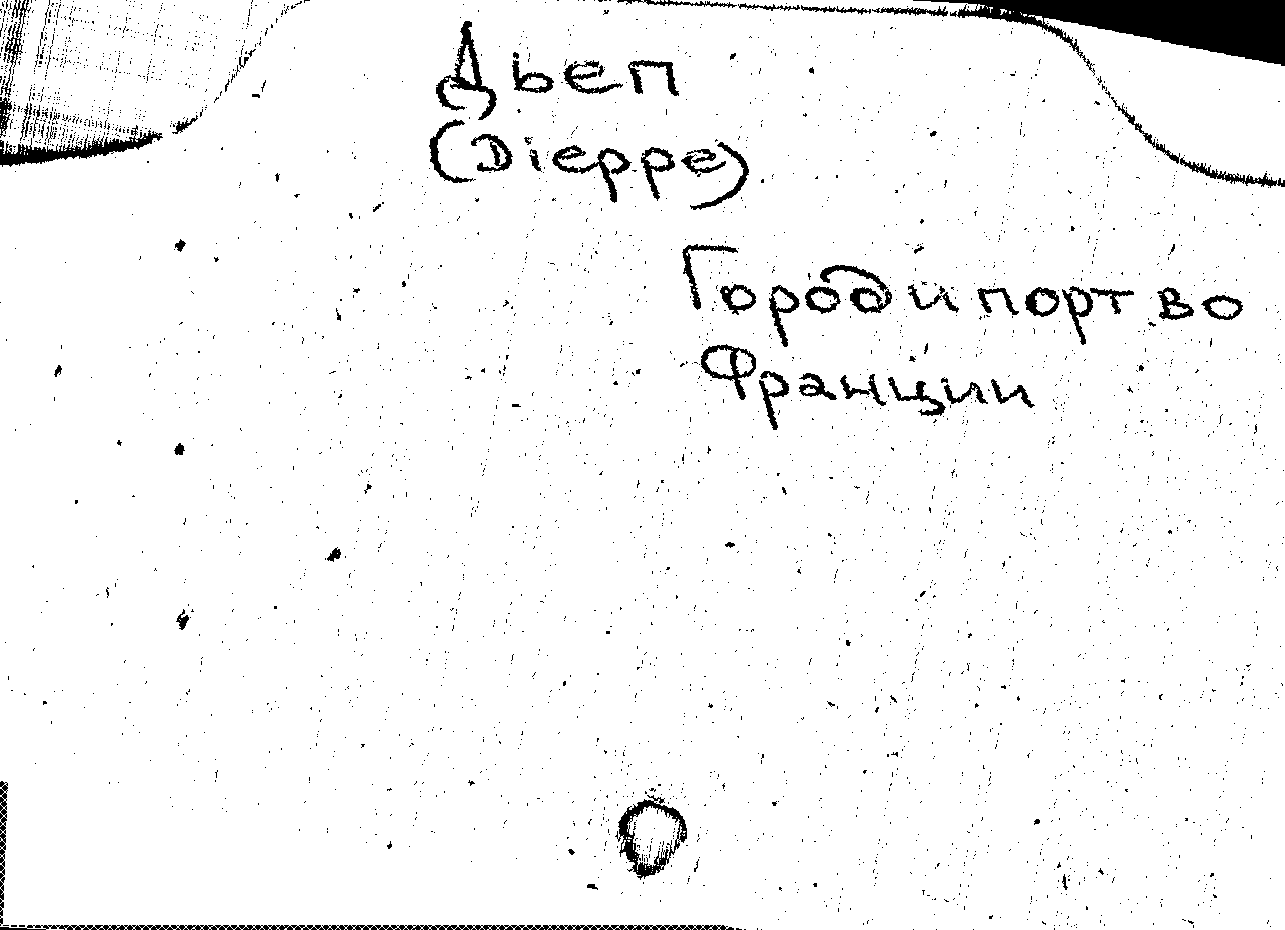 Дьеп
(Dieppe)
Город и порт во
Франции